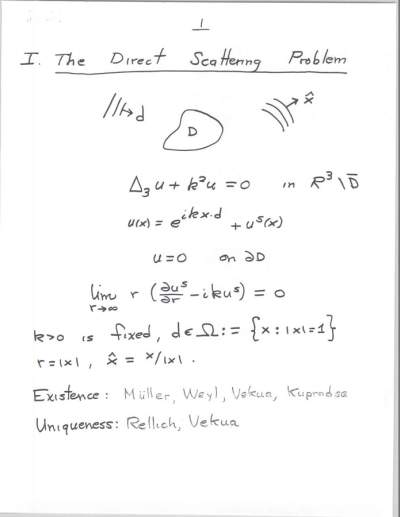 1
I. The Direct Scattering Problem
d
D
x̂
Δ₃u + k²u = 0 in R³\D̄
u(x) = e^{ikx·d} + u^s(x)
u = 0 on ∂D
lim_{r→∞} r (∂u^s/∂r - iku^s) = 0
k>0 is fixed, d ∈ Ω := {x : |x| = 1}
r = |x|, x̂ = x/|x|.
Existence: Müller, Weyl, Vekua, Kupradse
Uniqueness: Rellich, Vekua